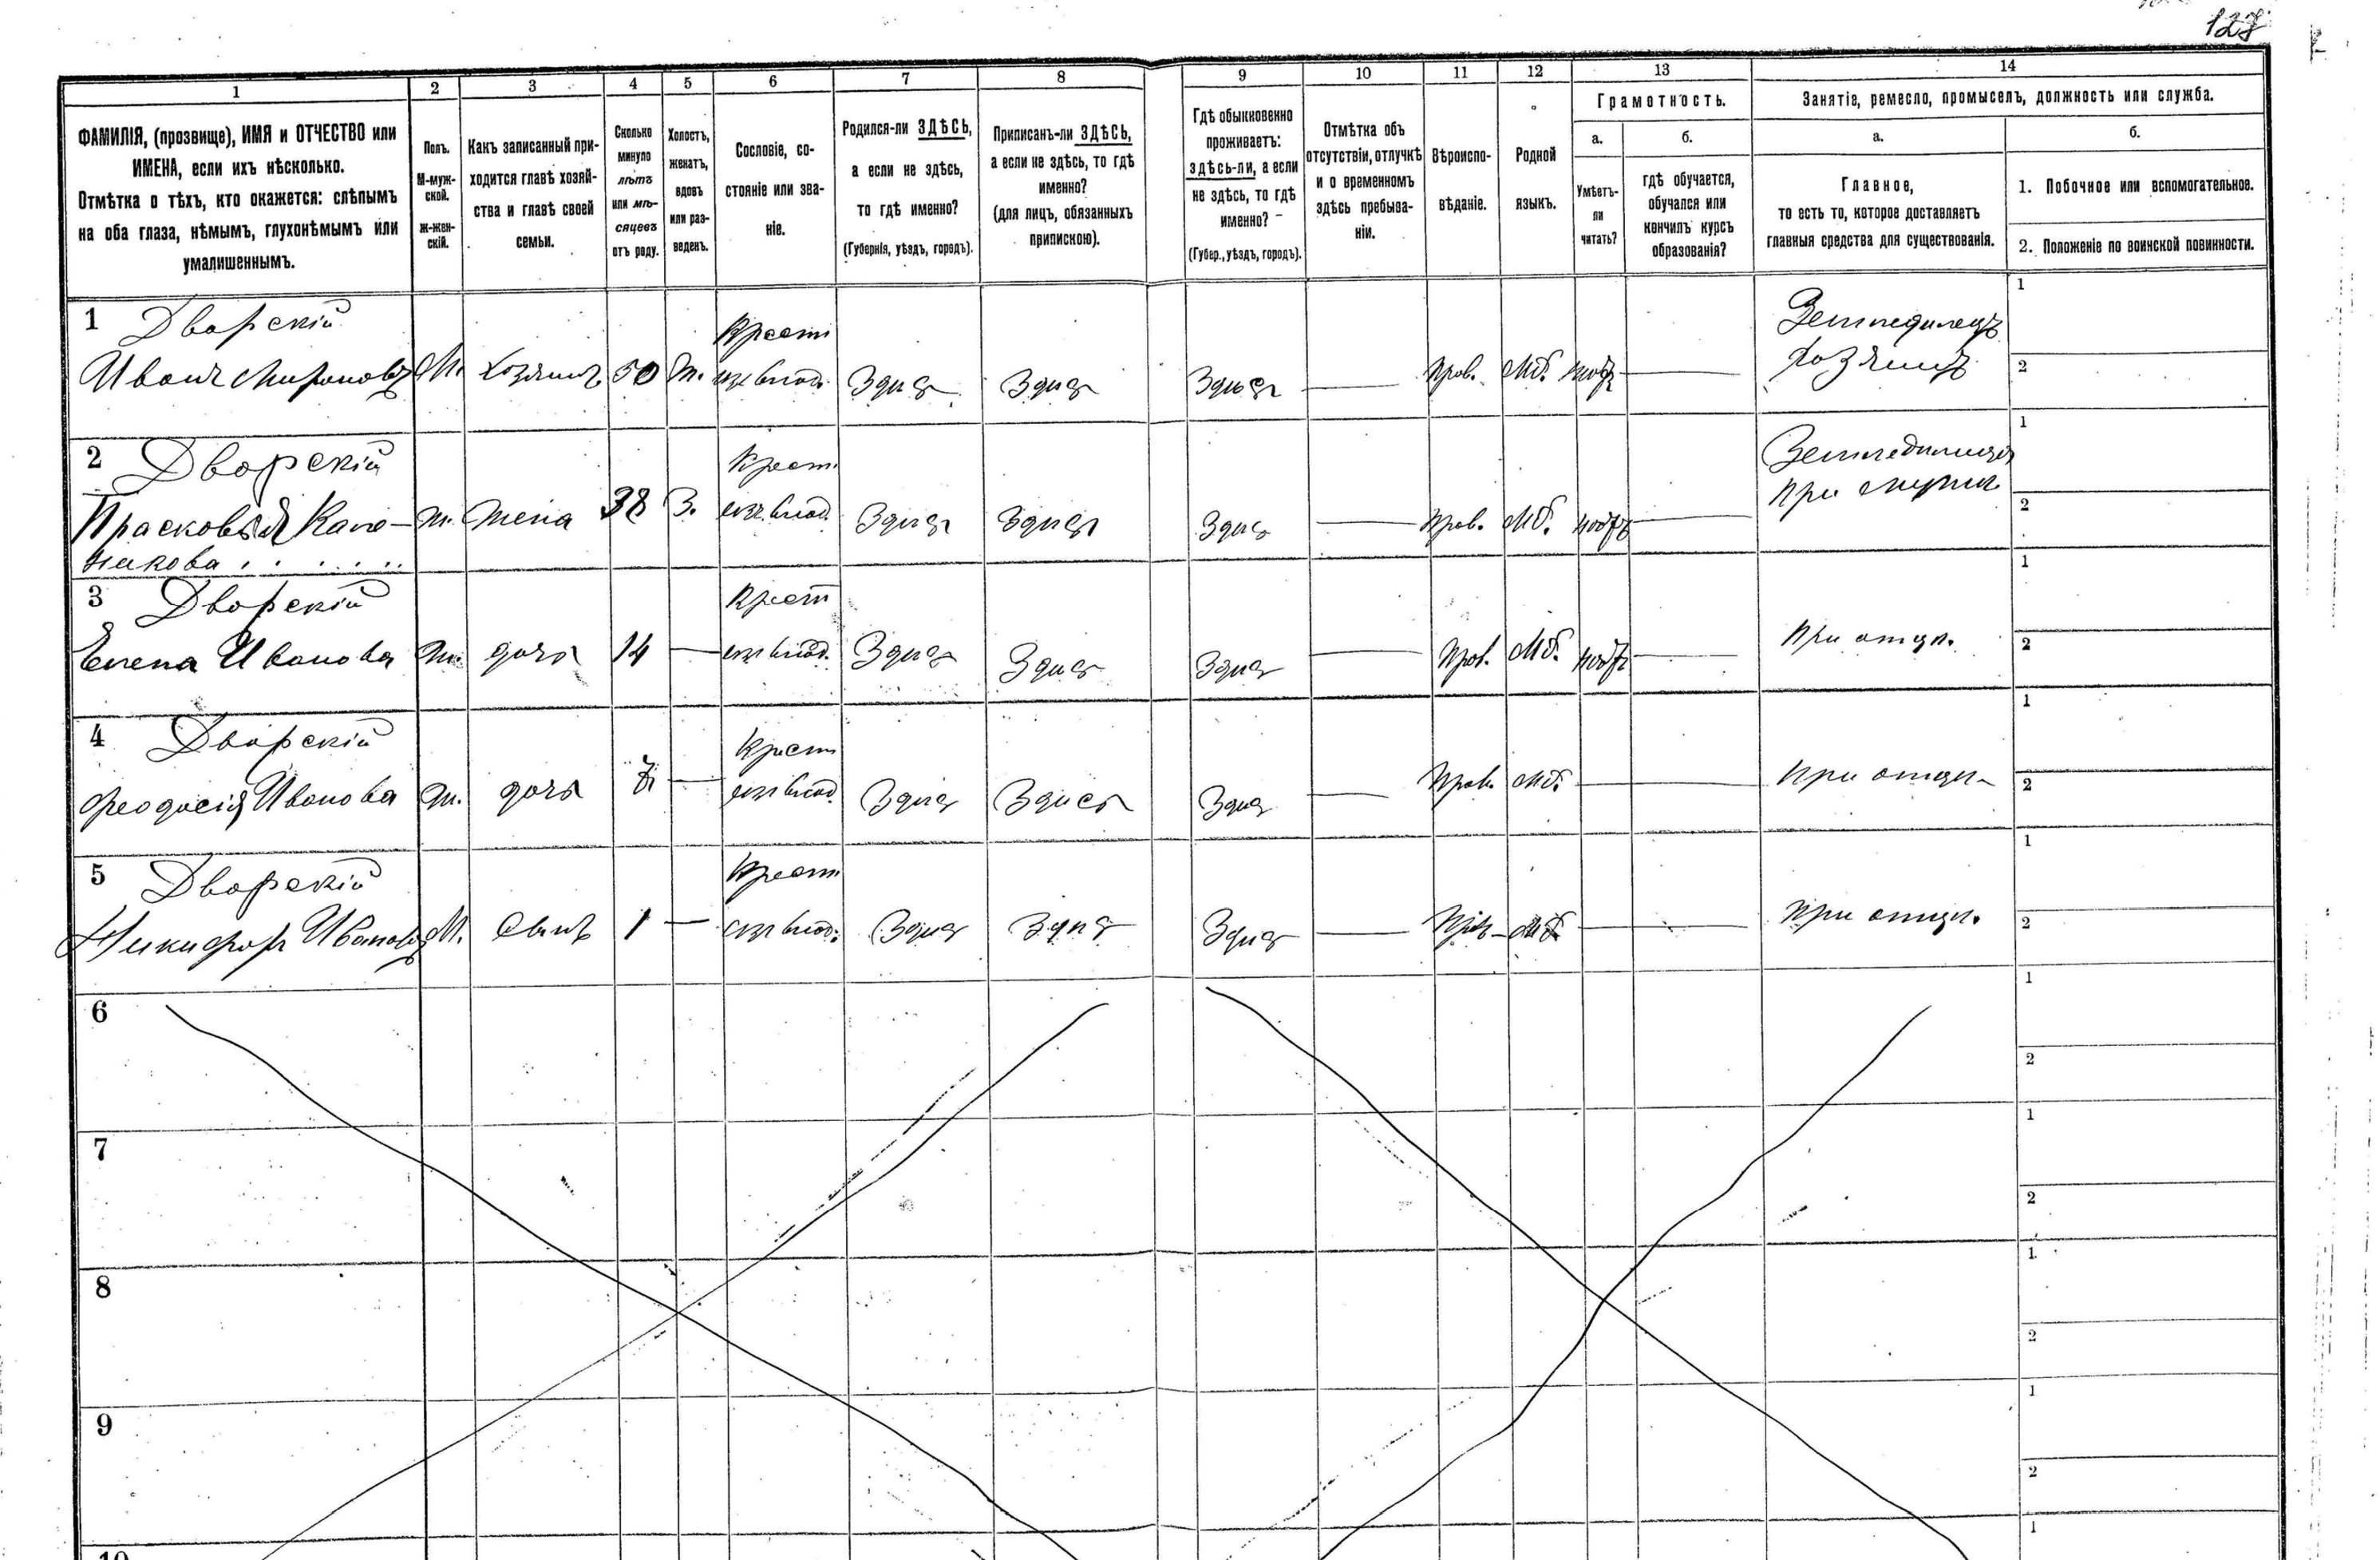 127
1 2 3 4 5 6 7 8 9 10 11 12 13 14
ФАМИЛІЯ, (прозвище), ИМЯ и ОТЧЕСТВО или
ИМЕНА, если ихъ нѣсколько.
Отмѣтка о тѣхъ, кто окажется: слѣпымъ
на оба глаза, нѣмымъ, глухонѣмымъ или
умалишеннымъ.
Полъ.
М-муж-
ской.
ж-жен-
скій.
Какъ записанный при-
ходится главѣ хозяй-
ства и главѣ своей
семьи.
Сколько
минуло
лѣтъ
или мѣ-
сяцевъ
отъ роду.
Холостъ,
женатъ,
вдовъ
или раз-
веденъ.
Сословіе, со-
стояніе или зва-
ніе.
Родился-ли ЗДѢСЬ,
а если не здѣсь,
то гдѣ именно?
(Губернія, уѣздъ, городъ).
Приписанъ-ли ЗДѢСЬ,
а если не здѣсь, то гдѣ
именно?
(для лицъ, обязанныхъ
припискою).
Гдѣ обыкновенно
проживаетъ:
здѣсь-ли, а если
не здѣсь, то гдѣ
именно? –
(Губер., уѣздъ, городъ).
Отмѣтка объ
отсутствіи, отлучкѣ
и о временномъ
здѣсь пребыва-
ніи.
Вѣроиспо-
вѣданіе.
Родной
языкъ.
Грамотность.
а.
Умѣетъ-
ли
читать?
б.
гдѣ обучается,
обучался или
кончилъ курсъ
образованія?
Занятіе, ремесло, промыселъ, должность или служба.
а.
Главное,
то есть то, которое доставляетъ
главныя средства для существованія.
б.
1. Побочное или вспомогательное.
2. Положеніе по воинской повинности.
1 Дворскій Крест. Земледѣлецъ 1
Иванъ Мироновъ М. хозяинъ 50 ж. Здѣсь Здѣсь Здѣсь — Прав. Мб. — хозяинъ 2
2 Дворскій Крест. 1
Прасковья Кано- ж. жена 38 З. Здѣсь Здѣсь Здѣсь — Прав. Мб. — при мужѣ 2
никова
3 Дворскій Крест 1
Елена Иванова ж. дочь 14 — Здѣсь Здѣсь Здѣсь — Прав. Мб. — При отцѣ. 2
4 Дворскій Крест 1
Феодосія Иванова ж. дочь 7 — Здѣсь Здѣсь Здѣсь — Прав. Мб. — При отцѣ 2
5 Дворскій Крест 1
Никифоръ Ивановъ М. сынъ 1 — Здѣсь Здѣсь Здѣсь — Прв. Мб. — При отцѣ. 2
6 1
2
7 1
2
8 1
2
9 1
2
10 1